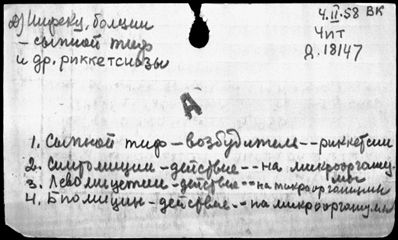 а) Ширеку, болции
– сыпной тиф
и др. риккетсиозы
4.II.58 ВК
Чит
Д. 18147
А
1. Сыпной тиф – возбудители -- риккетсии
2. Синтомицин – действие -- на микроорганизмы
3. Левомицетин – действие -- на микроорганизмы
4. Биомицин – действие -- на микроорганизмы